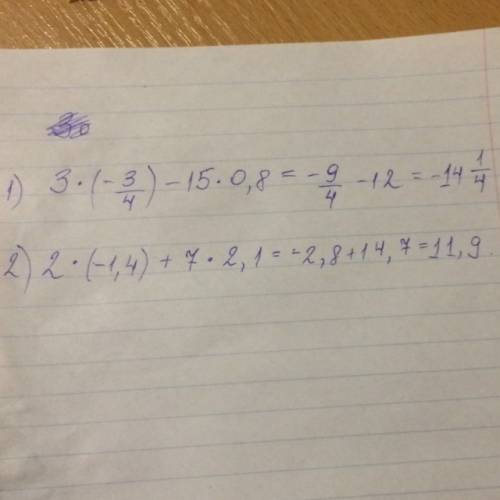 1) 3 · (-3/4) - 15 · 0,8 = -9/4 - 12 = -14 1/4
2) 2 · (-1,4) + 7 · 2,1 = -2,8 + 14,7 = 11,9.